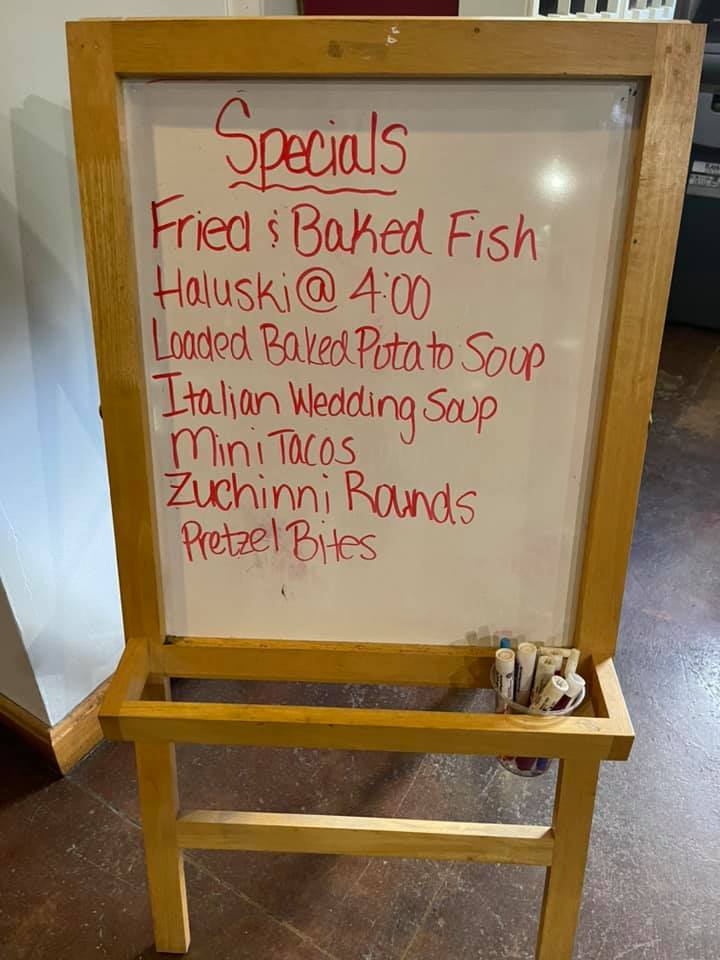 Specials
Fried & Baked Fish
Haluski @ 4:00
Loaded Baked Potato Soup
Italian Wedding Soup
Mini Tacos
Zuchinni Rounds
Pretzel Bites